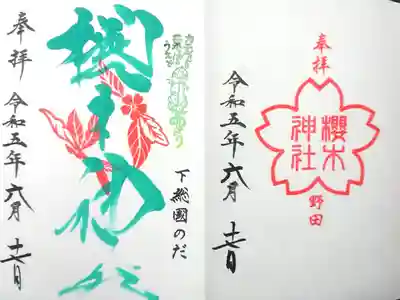 奉拝
櫻木
神社
野田
令和五年六月十七日
下総國のだ
櫻木神社
奉拝
令和五年六月十七日